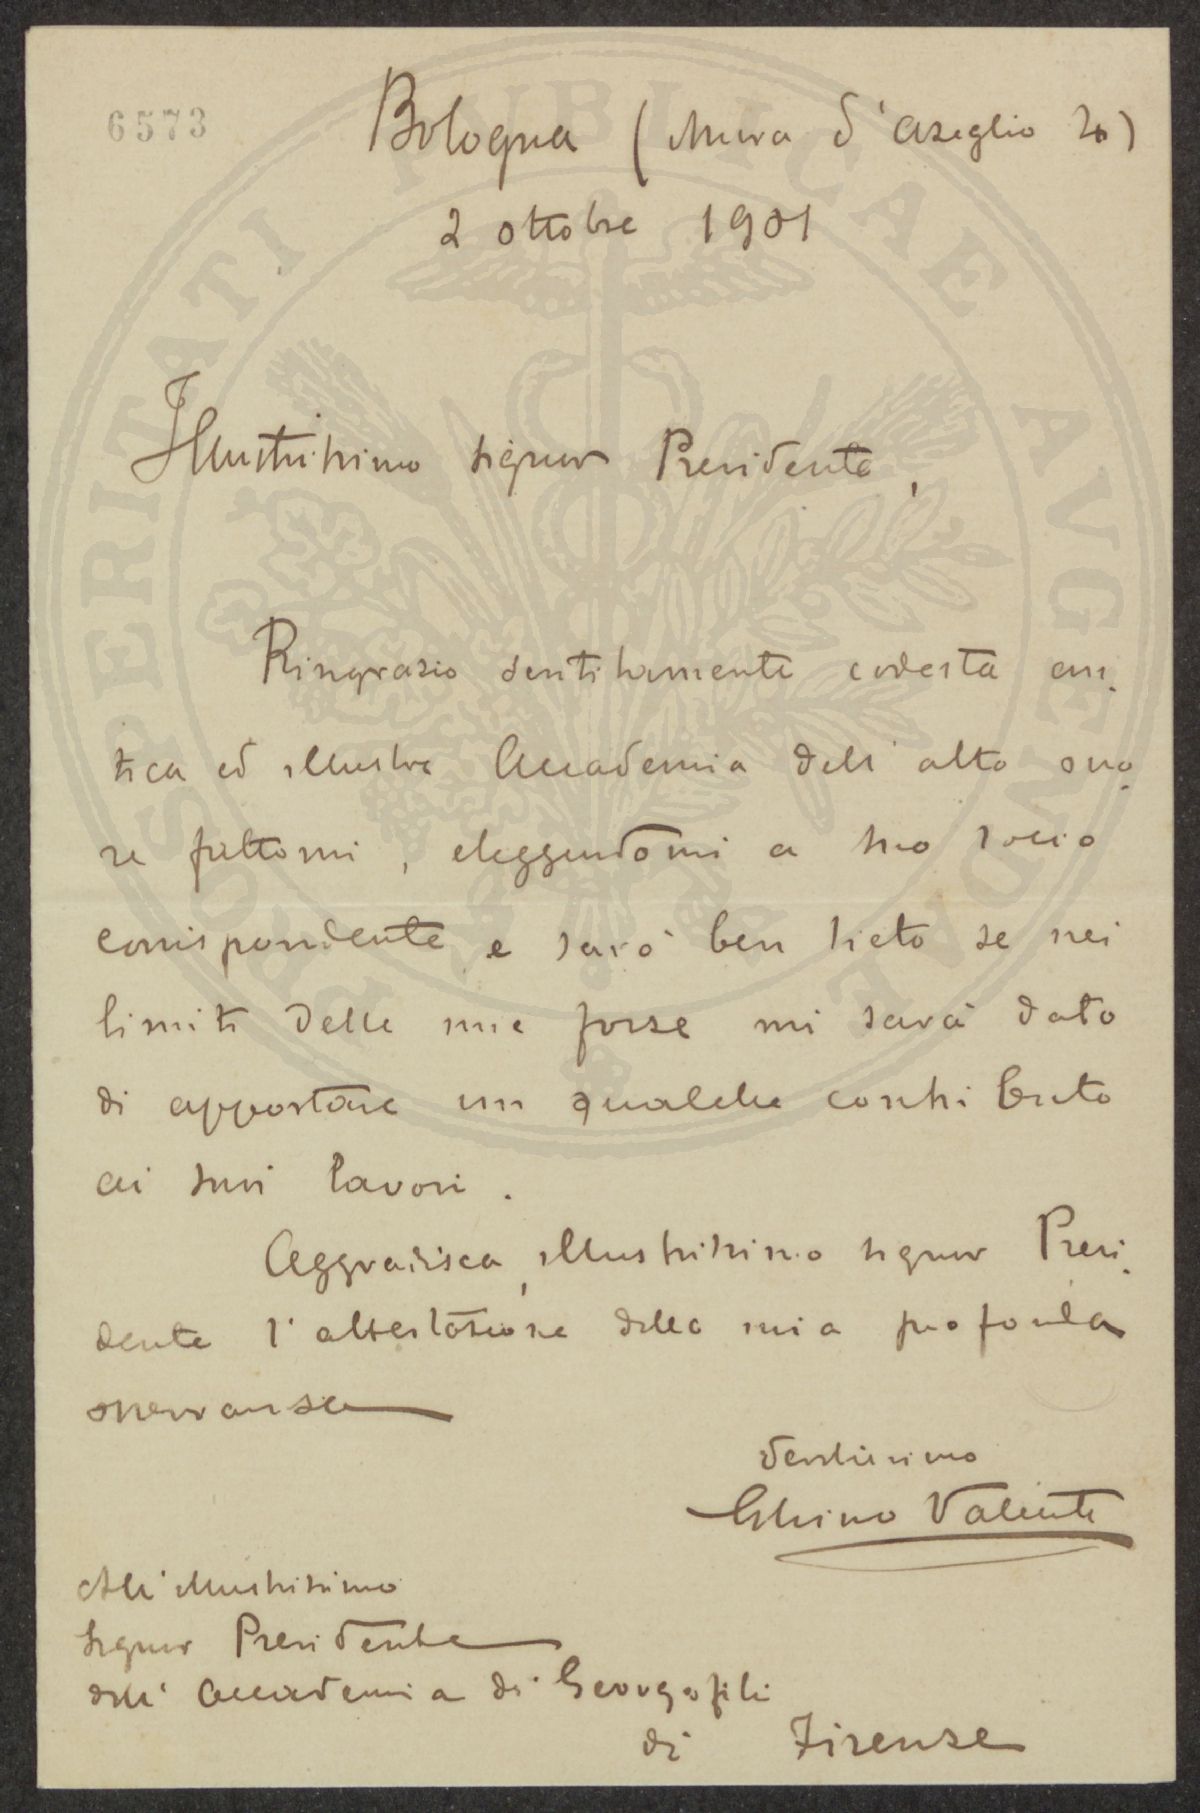 6573
Bologna (Mura d'Azeglio)
2 ottobre 1901
Illustrissimo signor Presidente,
Ringrazio sentitamente codesta an-
tica ed illustre Accademia dell'alto ono-
re fattomi, eleggendomi a suo socio
corrispondente e sarò ben lieto se nei
limiti delle mie forze mi sarà dato
di apportare un qualche contributo
ai suoi lavori.
Aggradisca, illustrissimo signor Presi-
dente l'attestazione della mia profonda
osservanza
devotissimo
Ghino Valenti
All'illustrissimo
signor Presidente
dell'Accademia di Georgofili
di Firenze
PROSPERITATI PUBLICAE AVGENDAE